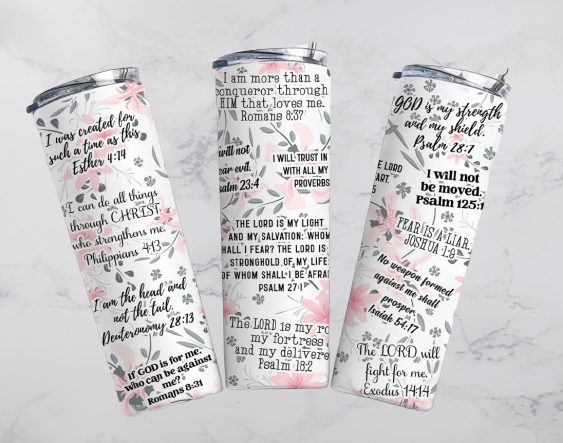 I was created for
such a time as this
Esther 4:14
I can do all things
through CHRIST
who strengthens me.
Philippians 4:13
I am the head and
not the tail.
Deuteronomy 28:13
If GOD is for me,
who can be against
me?
Romans 8:31
I am more than a
conqueror through
HIM that loves me.
Romans 8:37
will not
ear evil.
salm 23:4
I WILL TRUST IN
WITH ALL MY
PROVERBS
THE LORD IS MY LIGHT
AND MY SALVATION; WHOM
HALL I FEAR? THE LORD IS
STRONGHOLD OF MY LIFE;
OF WHOM SHALL I BE AFRAI
PSALM 27:1
The LORD is my ro
my fortress
and my delivere
Psalm 18:2
GOD is my strength
and my shield.
Psalm 28:7
HE LORD
ART.
5
I will not
be moved.
Psalm 125:1
FEAR IS A LIAR.
JOSHUA 1:9
No weapon formed
against me shall
prosper.
Isaiah 54:17
The LORD will
fight for me.
Exodus 14:14